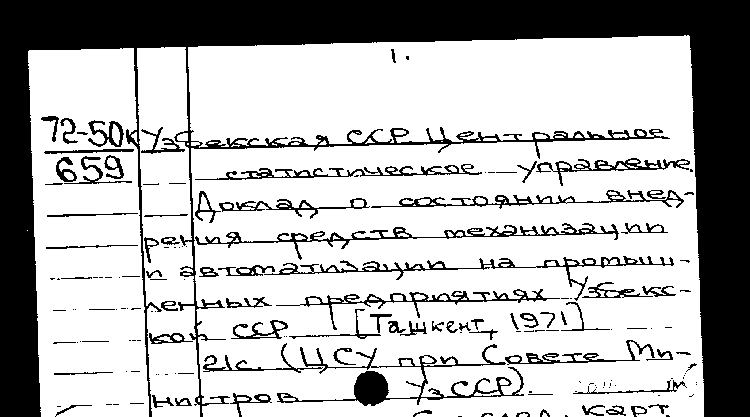 1.
72-50к Узбекская ССР. Центральное
659 статистическое управление.
Доклад о состоянии внед-
рения средств механизации
и автоматизации на промыш-
ленных предприятиях Узбекс-
кой ССР. [Ташкент, 1971]
21с. (ЦСУ при Совете Ми-
нистров УзССР).
карт.